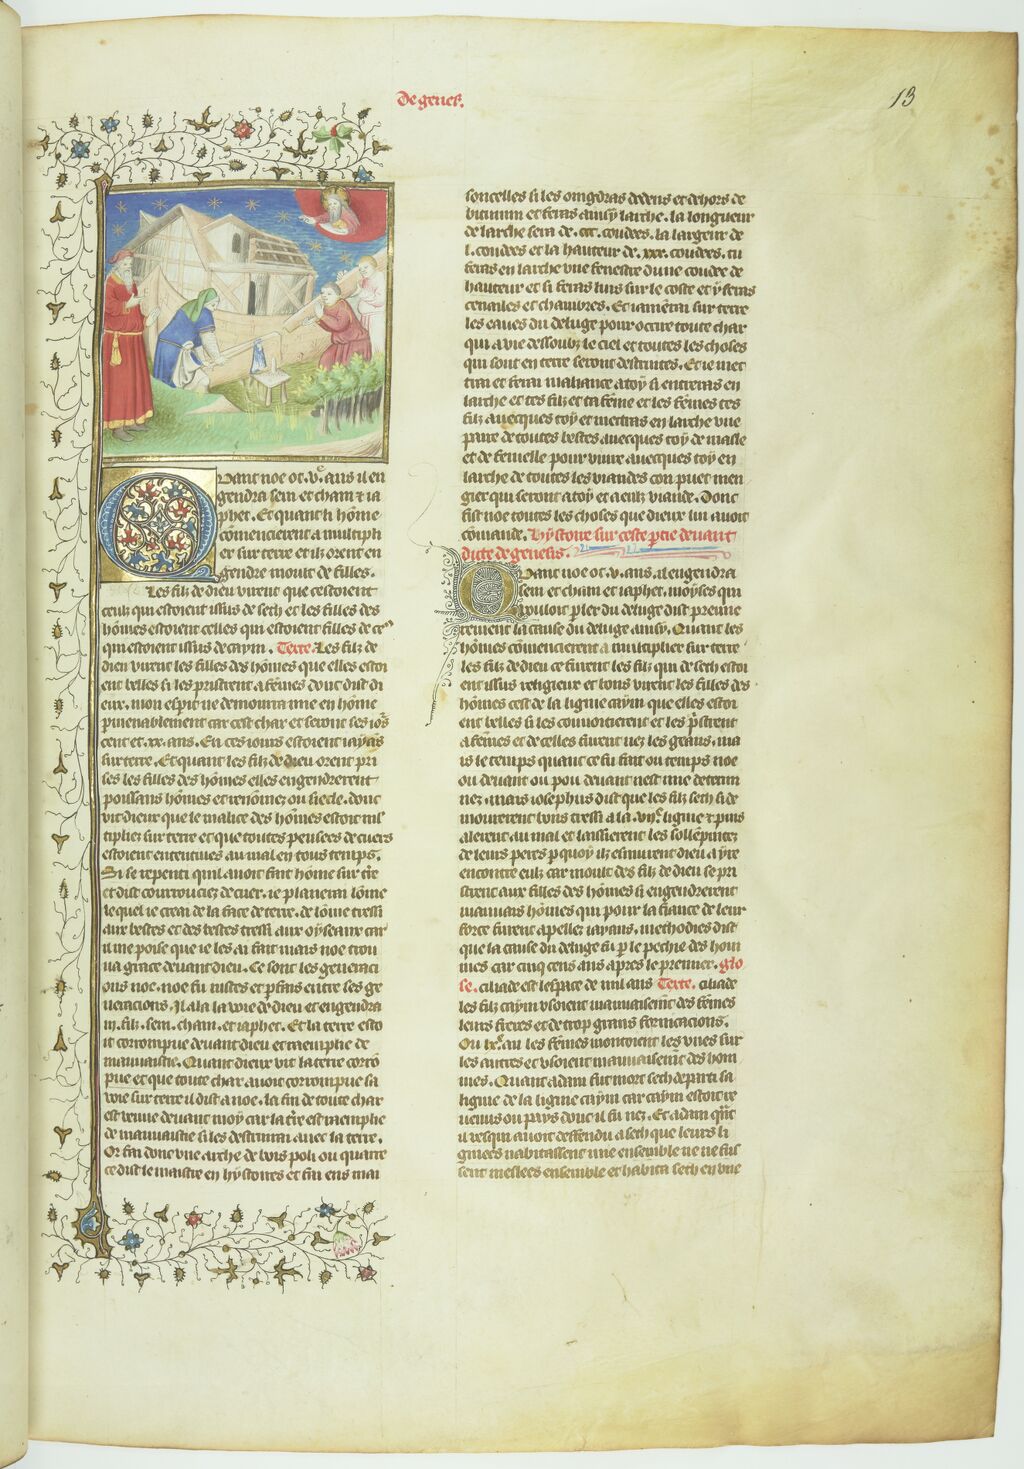 De genes.
13
Quant noe ot .v.c ans il en
gendra sem et cham & ia
phet. Et quant li hõme
cõmencierent a multipli
er sur terre et ilz orent en
gendre moult de filles.
Les filz de dieu virent que cestoient
ceulz qui estoient issus de seth et les filles des
hõmes estoient celles qui estoient filles de ceulx
qui estoient issus de caym. Texte. Les filz de
dieu virent les filles des hõmes que elles estoi
ent belles si les pristrent a fẽmes donc dist di
eux. mon esp̃it ne demourra mie en hõme
pmenablement car cest char et seront ses iors
cent et .xx. ans. En ces iours estoient iayans
sur terre. Et quant les filz de dieu orent pri
ses les filles des hõmes elles engendrerent
poissans hõmes et renõmez ou siecle. donc
vit dieux que le malice des hõmes estoit ml
tipliez sur terre et que toutes pensees de cuers
estoient ententives au mal en tous temps.
Si se repenti quil avoit fait hõme sur tr̃e
et dist courrouciez de cuer. ie planerai lõme
lequel ie creai de la face de terre. de lõme tressi
aux bestes et des bestes tressi aux oyseaux car
il me poise que ie les ai fait mais noe trou
va grace devant dieu. Ce sont les generaci
ons noe. noe fu iustes et pfais entre ses ge
neracions. Il ala la voie de dieu et engendra
.iij. filz. sem. cham. et iaphet. Et la terre esto
it corrompue devant dieu et raemplie de
mauvaistie. Quant dieux vit la terre corrõ
pue et que toute char avoit corrompue sa
voie sur terre il dist a noe. la fin de toute char
est venue devant moy car la tr̃e est raemplie
de mauvaistie si les destruirai avec la terre.
Or fai donc une arche de bois poli ou quarre
ce dist le maistre en hystoires et fai ens mai
soncelles si les oingdras dedens et dehors de
bitumin et feras ainsy larche. la longueur
de larche sera de .ccc. coudees. la largeur de
.l. coudees et la hauteur de .xxx. coudees. tu
feras en larche une fenestre dune coudee de
hauteur et si feras luis sur le coste et y feras
cenailes et chambres. Et iamẽrai sur terre
les eaues du deluge pour occire toute char
qui a vie dessoubz le ciel et toutes les choses
qui sont en terre seront destruites. Et ie met
trai et ferai maliance a toy si entreras en
larche et tes filz et ta fẽme et les fẽmes tes
filz avecques toy et mettras en larche une
paire de toutes bestes avecques toy de masle
et de femelle pour vivre avecques toy en
larche de toutes les viandes con puet men
gier qui seront a toy et a eulz viande. Donc
fist noe toutes les choses que dieux lui avoit
cõmande. Hystoire sur ceste ptie devant
dicte de genesis.
Quant noe ot .v.c ans. il engendra
sem et cham et iaphet. moyses qui
vouloit pler du deluge dist premie
rement la cause du deluge ainsy. Quant les
hõmes cõmencierent a multiplier sur terre
les filz de dieu ce furent les filz qui de seth estoi
ent issus religieux et bons virent les filles des
hõmes cest de la ligne caym que elles estoi
ent belles si les convoitierent et les pristrent
a fẽmes et de celles furent nez les geans. ma
is le temps quant ce fu fait ou temps noe
ou devant ou pou devant nest mie determi
nez. mais iosephus dist que les filz seth si de
mourerent bons tressi a la .vije. ligne & puis
alerent au mal et laissierent les sollẽpnitez
de leurs peres p quoy ilz esmurent dieu a yre
encontre eulz car moult des filz de dieu se pri
strent aux filles des hõmes si engendrerent
mauvais hõmes qui pour la fiance de leur
force furent apellez iayans. methodies dist
que la cause du deluge fu p le pechie des hom
mes car cinq cens ans apres le premier. glo
se. ciliade est lespace de mil ans Texte. ciliade
les filz caym usoient mauvaisemẽt des fẽmes
leurs freres et de trop grans fornicacions.
Ou an les fẽmes montoient les unes sur
les autres et usoient mauvaisemẽt des hom
mes. Quant adam fut mort seth departi sa
lignie de la lignie caym car caym estoit re
venus ou pays dont il fu nez. Et adam qñt
il vesqui avoit deffendu a seth que leurs li
gniees nabitassent mie ensemble ne ne fus
sent meslees ensemble et habita seth en une